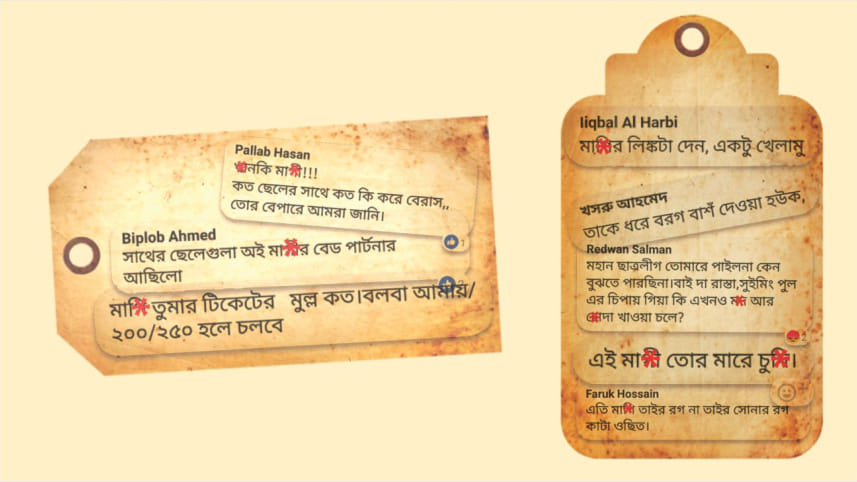 Pallab Hasan
মা
!!!
কত ছেলের সাথে কত কি করে বেরাস,,
তোর বেপারে আমরা জানি।
Biplob Ahmed
সাথের ছেলেগুলা অই বেড পার্টনার
আছিলো
তুমার টিকেটের মুল্ল কত।বলবা আমায়/
২০০/২৫০ হলে চলবে
Iiqbal Al Harbi
লিঙ্কটা দেন, একটু খেলামু
খসরু আহমেদ
তাকে ধরে বরগ বাশঁ দেওয়া হউক,
Redwan Salman
মহান ছাত্রলীগ তোমারে পাইলনা কেন
বুঝতে পারছিনা।বাই দা রাস্তা,সুইমিং পুল
এর চিপায় গিয়া কি এখনও আর
খাওয়া চলে?
এই তোর মারে
Faruk Hossain
এতি তাইর রগ না তাইর সোনার রগ
কাটা ওছিত।